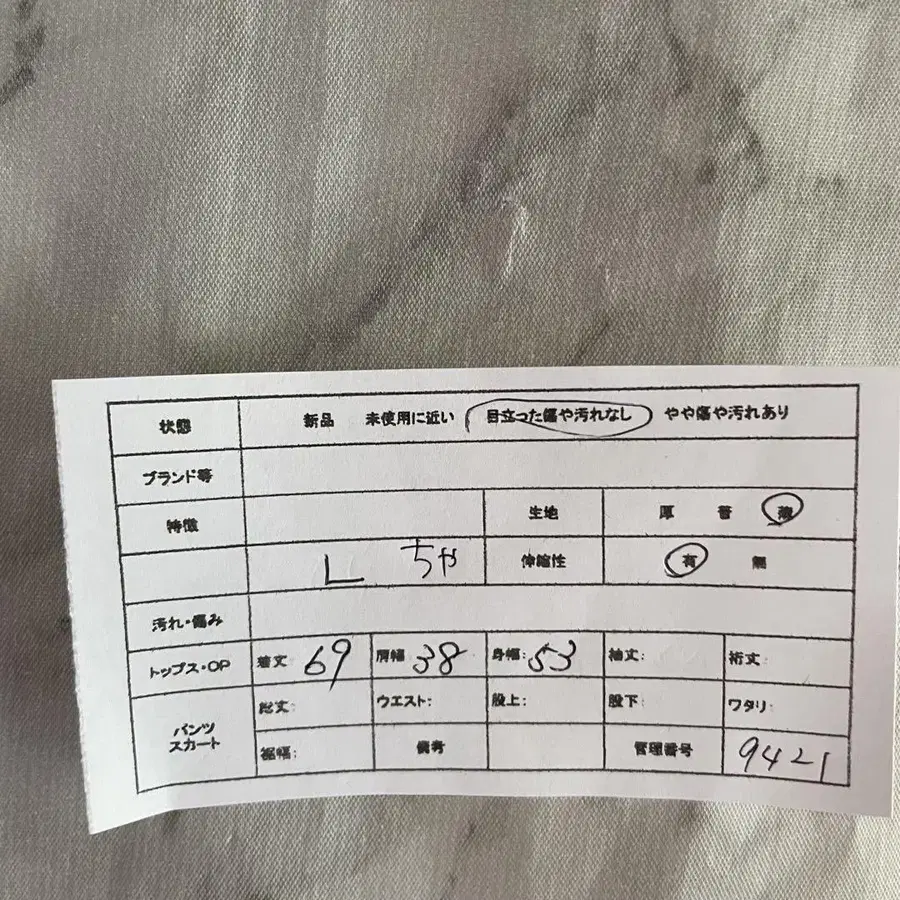 状態 新品 未使用に近い 目立った傷や汚れなし やや傷や汚れあり
ブランド等
特徴 生地 厚 普 薄
L ちゃ 伸縮性 有 無
汚れ・傷み
トップス・OP 着丈: 69 肩幅: 38 身幅: 53 袖丈: 裄丈:
パンツ スカート 総丈: ウエスト: 股上: 股下: ワタリ:
裾幅: 備考 管理番号 9421